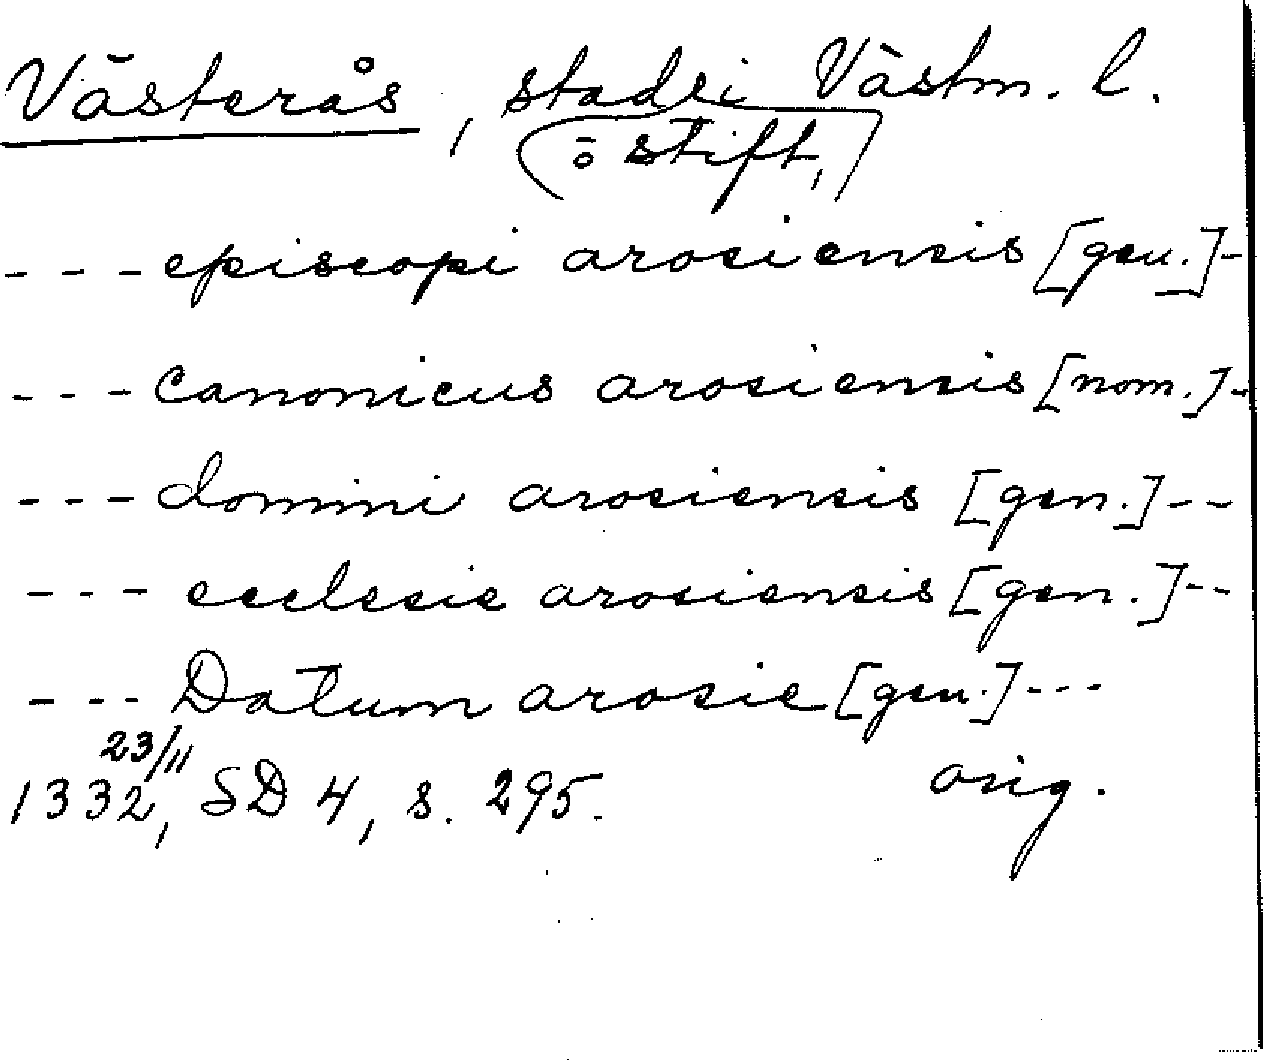 Västerås, stad i Västm. l.
ō stift,
--- episcopi arosiensis [gen.] -
--- Canonicus arosiensis [nom.] -
--- domini arosiensis [gen.] --
--- ecclesie arosiensis [gen.] --
--- Datum arosie [gen.] ---
23/11
1332, SD 4, s. 295.
orig.